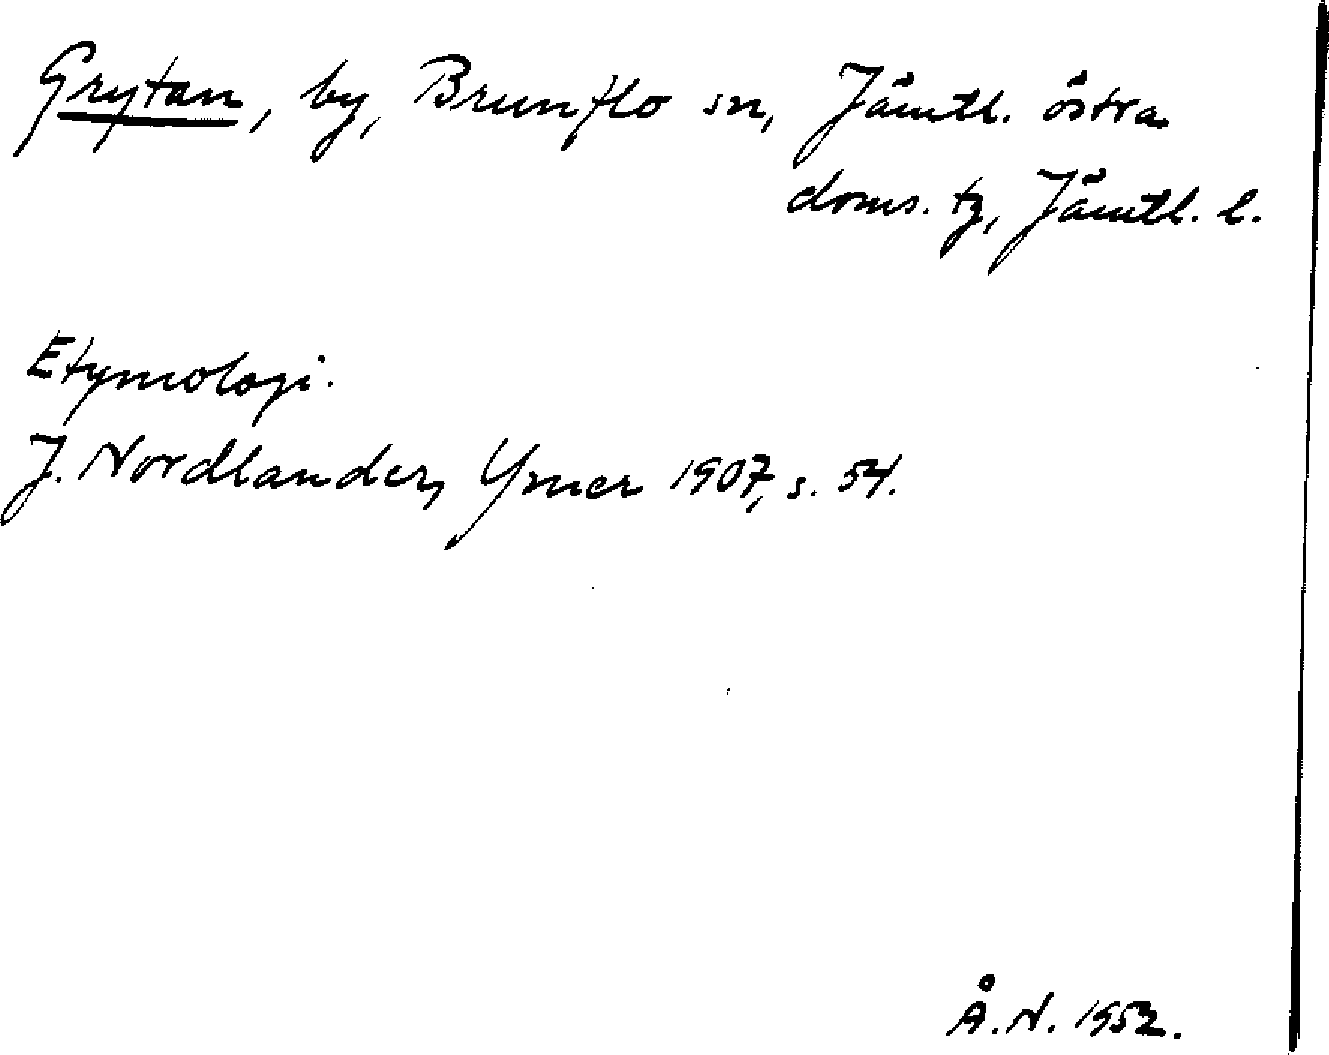 Grytan, by, Brunflo sn, Jämtl. östra
doms. tg, Jämtl. l.
Etymologi.
J. Nordlander, Ymer 1907, s. 54.
Å.N. 1952.